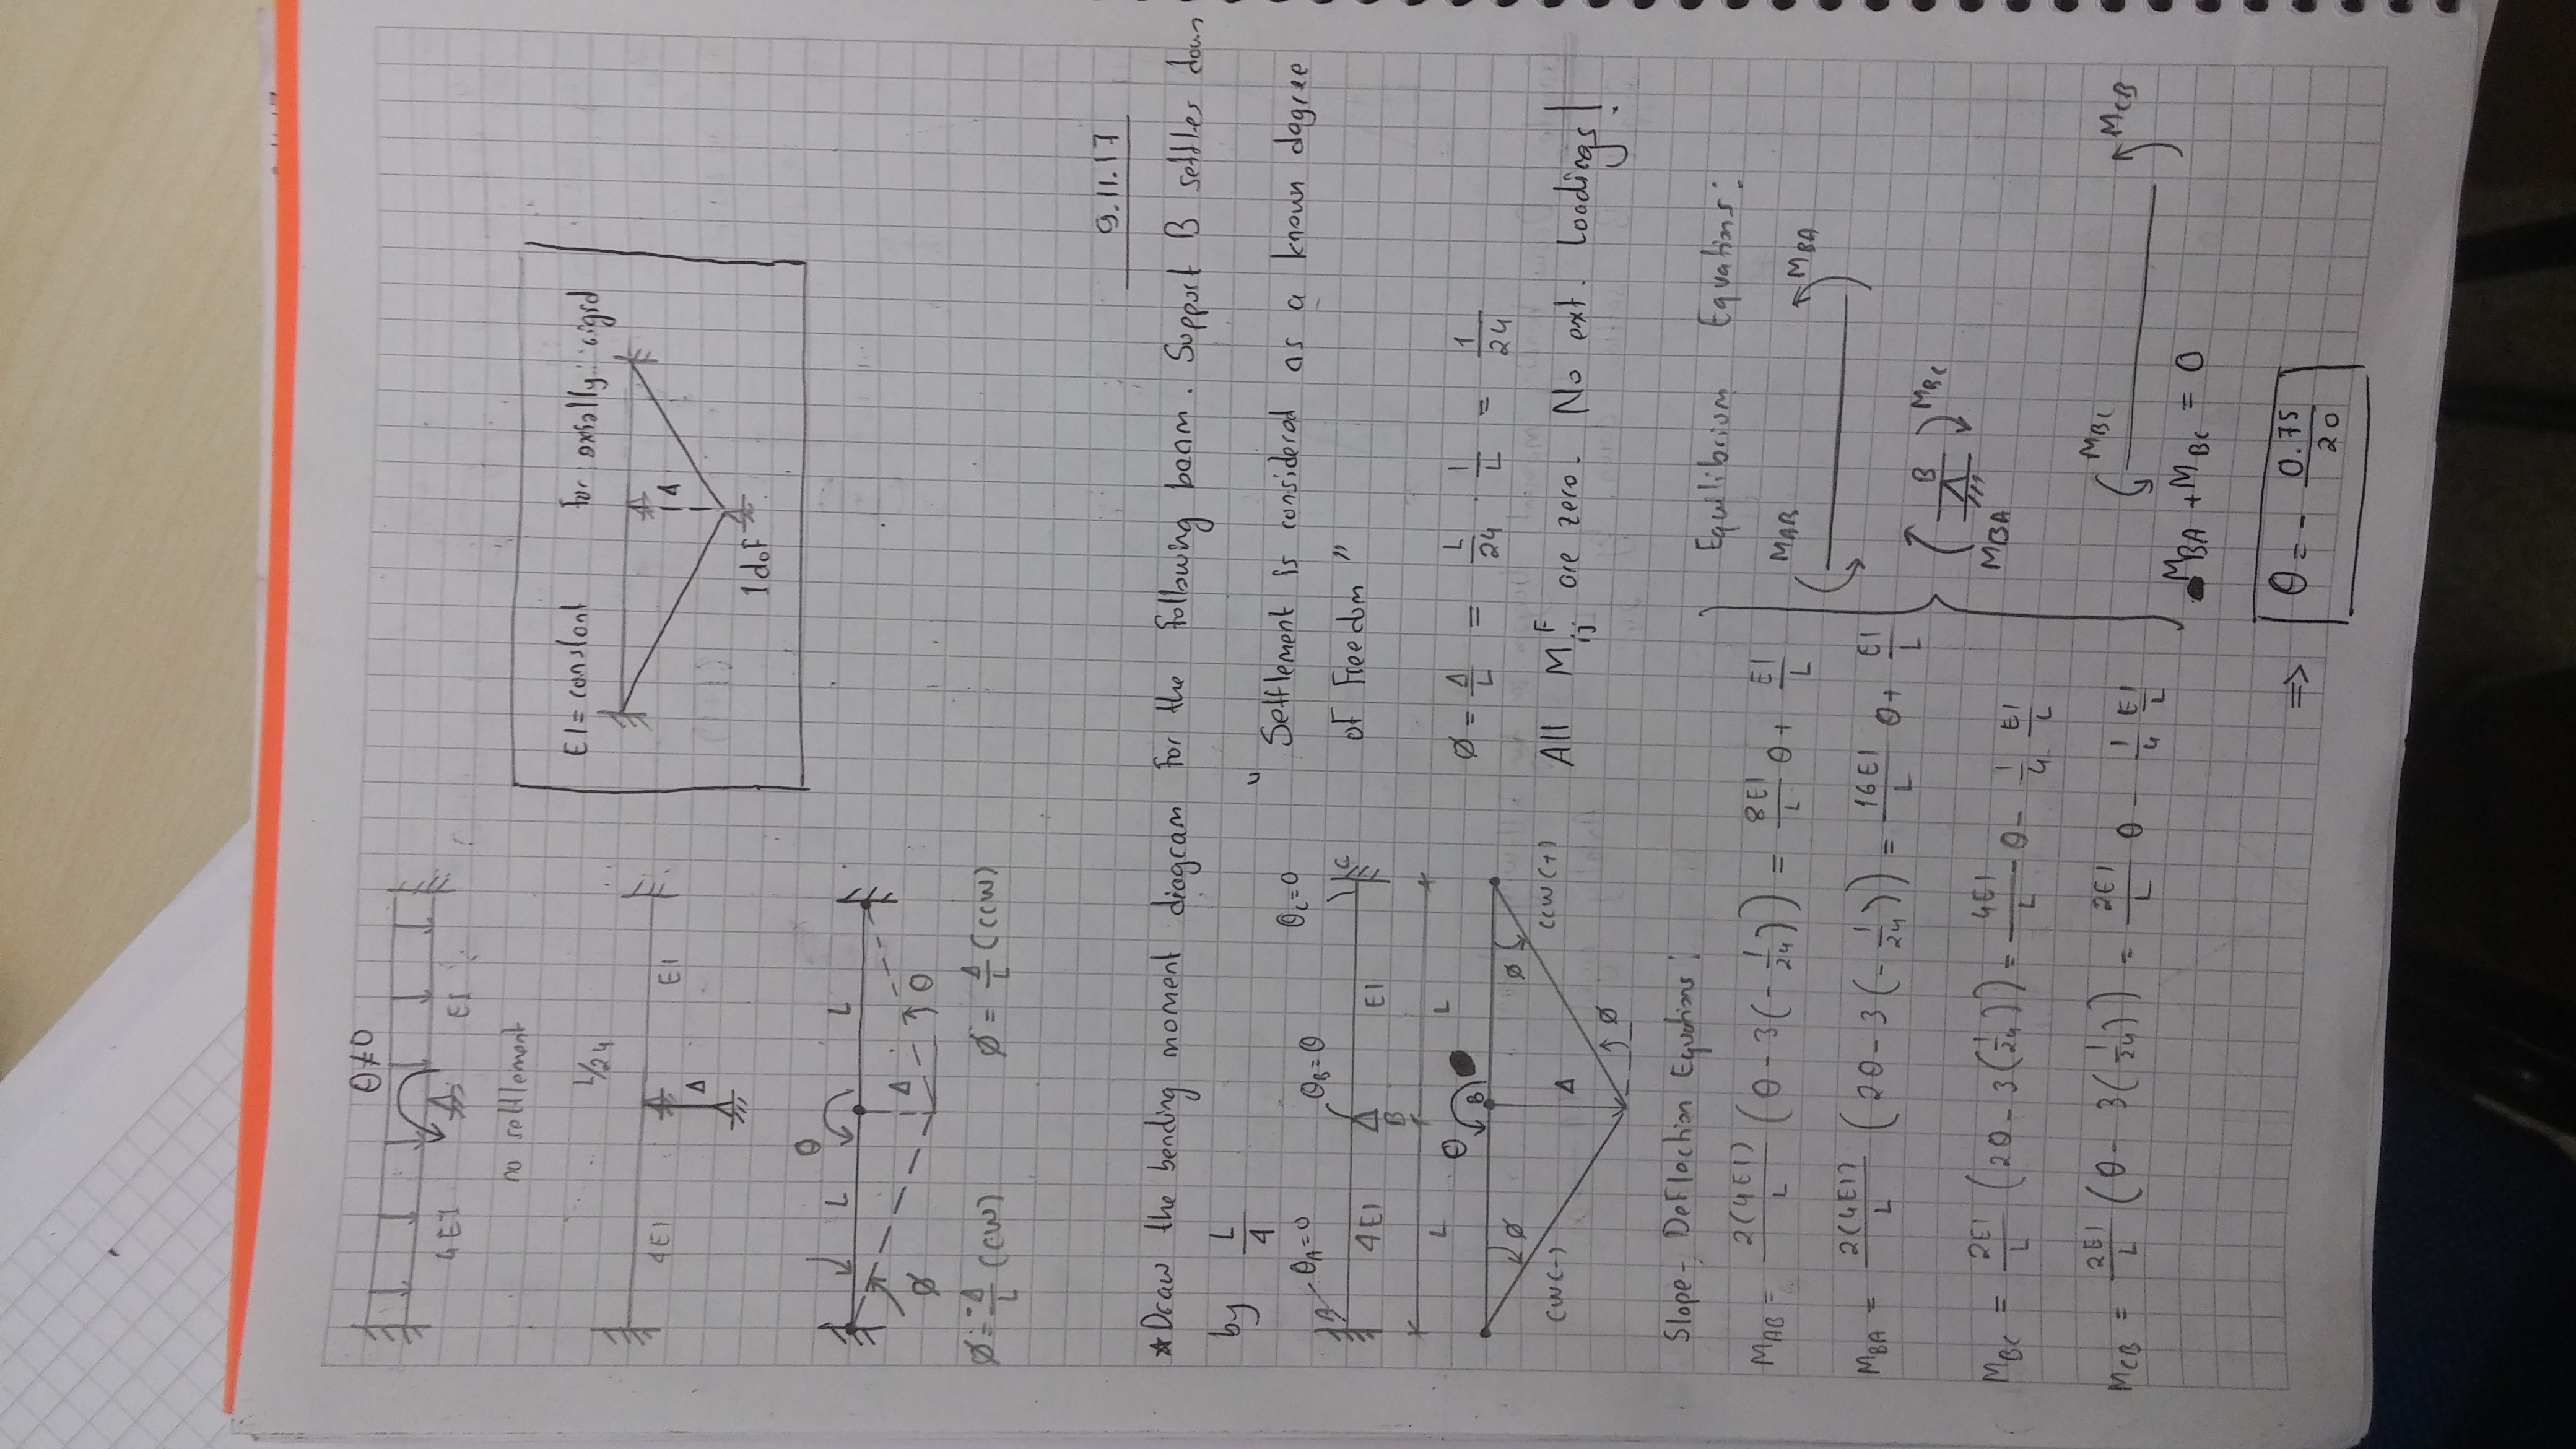 θ≠0
4EI EI
no settlement
L/24
4EI EI
Δ
EI = constant For axially rigid
Δ
1 dof
θ
L L
Δ θ
Ø
Ø = -Δ/L (cw) Ø = Δ/L (ccw)
9.11.17
★Draw the bending moment diagram for the following beam. Support B settles down
by L/4
"Settlement is considered as a known degree
of Freedom"
A θA=0 θB=θ θC=0 C
4EI B EI
L L
θ B
Ø Ø
cw(-) Δ ccw(+)
Ø
Ø = Δ/L = L/24 · 1/L = 1/24
All M^F_ij are zero. No ext. Loadings!
Slope - Deflection Equations:
M_AB = 2(4EI)/L (θ - 3(-1/24)) = 8EI/L θ + EI/L
M_BA = 2(4EI)/L (2θ - 3(-1/24)) = 16EI/L θ + EI/L
M_BC = 2EI/L (2θ - 3(1/24)) = 4EI/L θ - 1/4 EI/L
M_CB = 2EI/L (θ - 3(1/24)) = 2EI/L θ - 1/4 EI/L
Equilibrium Equations:
M_AB M_BA
B M_BC
M_BA
M_BC M_CB
M_BA + M_BC = 0
⇒ θ = - 0.75/20